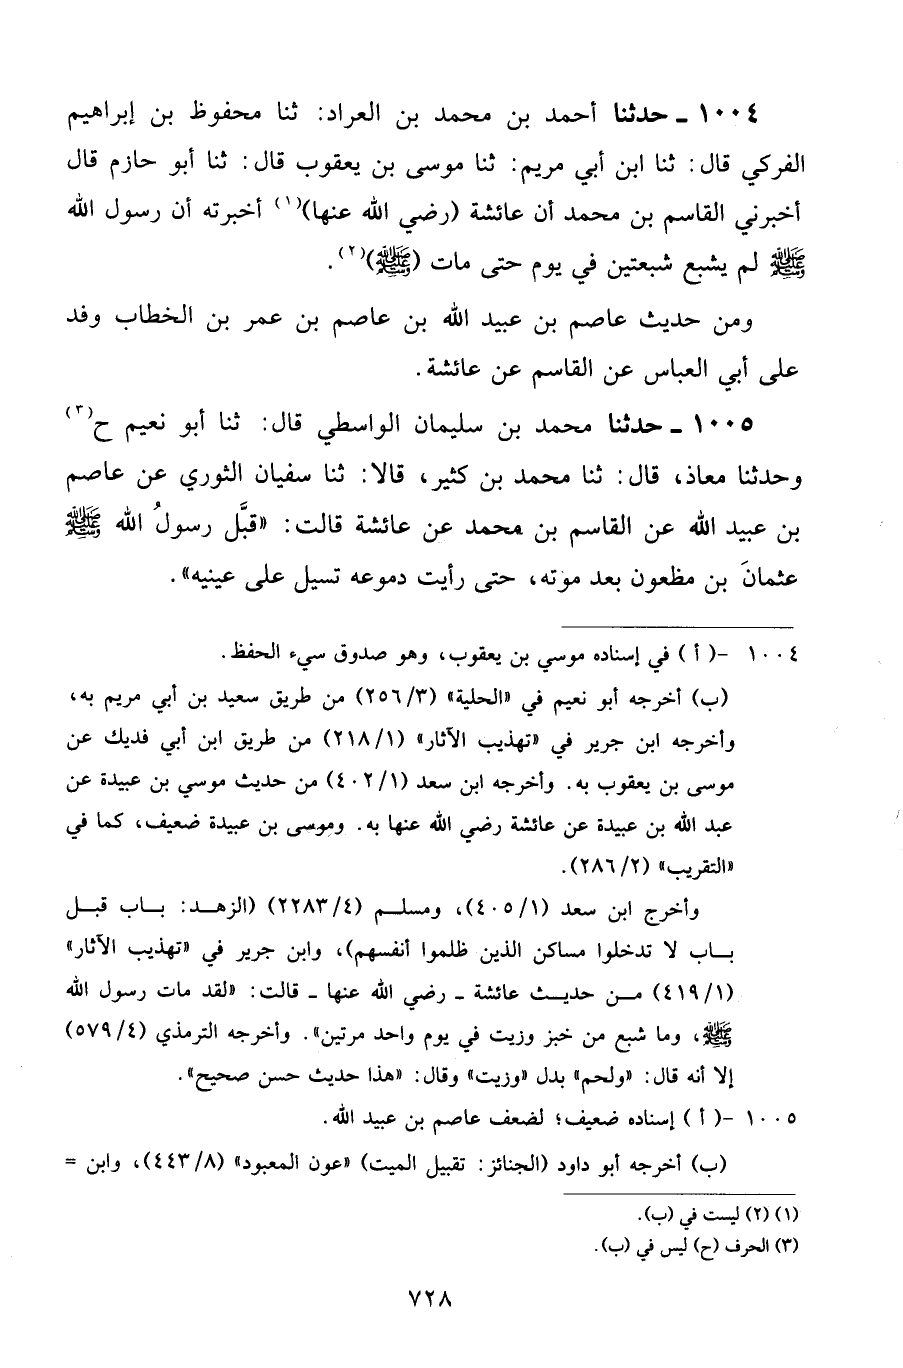 ١٠٠٤ ـ حدثنا أحمد بن محمد بن العراد: ثنا محفوظ بن إبراهيم
الفركي قال: ثنا ابن أبي مريم: ثنا موسى بن يعقوب قال: ثنا أبو حازم قال
أخبرني القاسم بن محمد أن عائشة (رضي الله عنها)(١) أخبرته أن رسول الله
ﷺ لم يشبع شبعتين في يوم حتى مات (ﷺ)(٢).
ومن حديث عاصم بن عبيد الله بن عاصم بن عمر بن الخطاب وفد
على أبي العباس عن القاسم عن عائشة.
١٠٠٥ ـ حدثنا محمد بن سليمان الواسطي قال: ثنا أبو نعيم ح(٣)
وحدثنا معاذ، قال: ثنا محمد بن كثير، قالا: ثنا سفيان الثوري عن عاصم
بن عبيد الله عن القاسم بن محمد عن عائشة قالت: «قبَّل رسولُ الله ﷺ
عثمانَ بن مظعون بعد موته، حتى رأيت دموعه تسيل على عينيه».
١٠٠٤ -(أ) في إسناده موسي بن يعقوب، وهو صدوق سيء الحفظ.
(ب) أخرجه أبو نعيم في «الحلية» (٢٥٦/٣) من طريق سعيد بن أبي مريم به،
وأخرجه ابن جرير في «تهذيب الآثار» (٢١٨/١) من طريق ابن أبي فديك عن
موسى بن يعقوب به. وأخرجه ابن سعد (٤٠٢/١) من حديث موسي بن عبيدة عن
عبد الله بن عبيدة عن عائشة رضي الله عنها به. وموسى بن عبيدة ضعيف، كما في
«التقريب» (٢٨٦/٢).
وأخرج ابن سعد (٤٠٥/١)، ومسلم (٢٢٨٣/٤) (الزهد: باب قبل
باب لا تدخلوا مساكن الذين ظلموا أنفسهم)، وابن جرير في «تهذيب الآثار»
(٤١٩/١) من حديث عائشة ـ رضي الله عنها ـ قالت: «لقد مات رسول الله
ﷺ، وما شبع من خبز وزيت في يوم واحد مرتين». وأخرجه الترمذي (٥٧٩/٤)
إلا أنه قال: «ولحم» بدل «وزيت» وقال: «هذا حديث حسن صحيح».
١٠٠٥ -(أ) إسناده ضعيف؛ لضعف عاصم بن عبيد الله.
(ب) أخرجه أبو داود (الجنائز: تقبيل الميت) «عون المعبود» (٤٤٣/٨)، وابن =
(١) (٢) ليست في (ب).
(٣) الحرف (ح) ليس في (ب).
٧٢٨